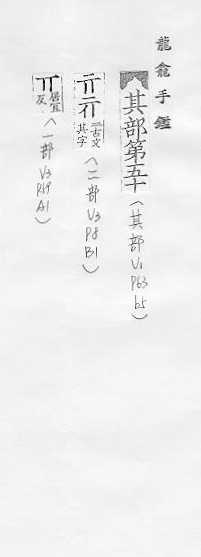 龍龕手鑑
其部第五十(其部 V1 P63 b5)
亓 二古文其字(二部 V3 P8 B1)
丌 居宜反(一部 V3 P19 A1)